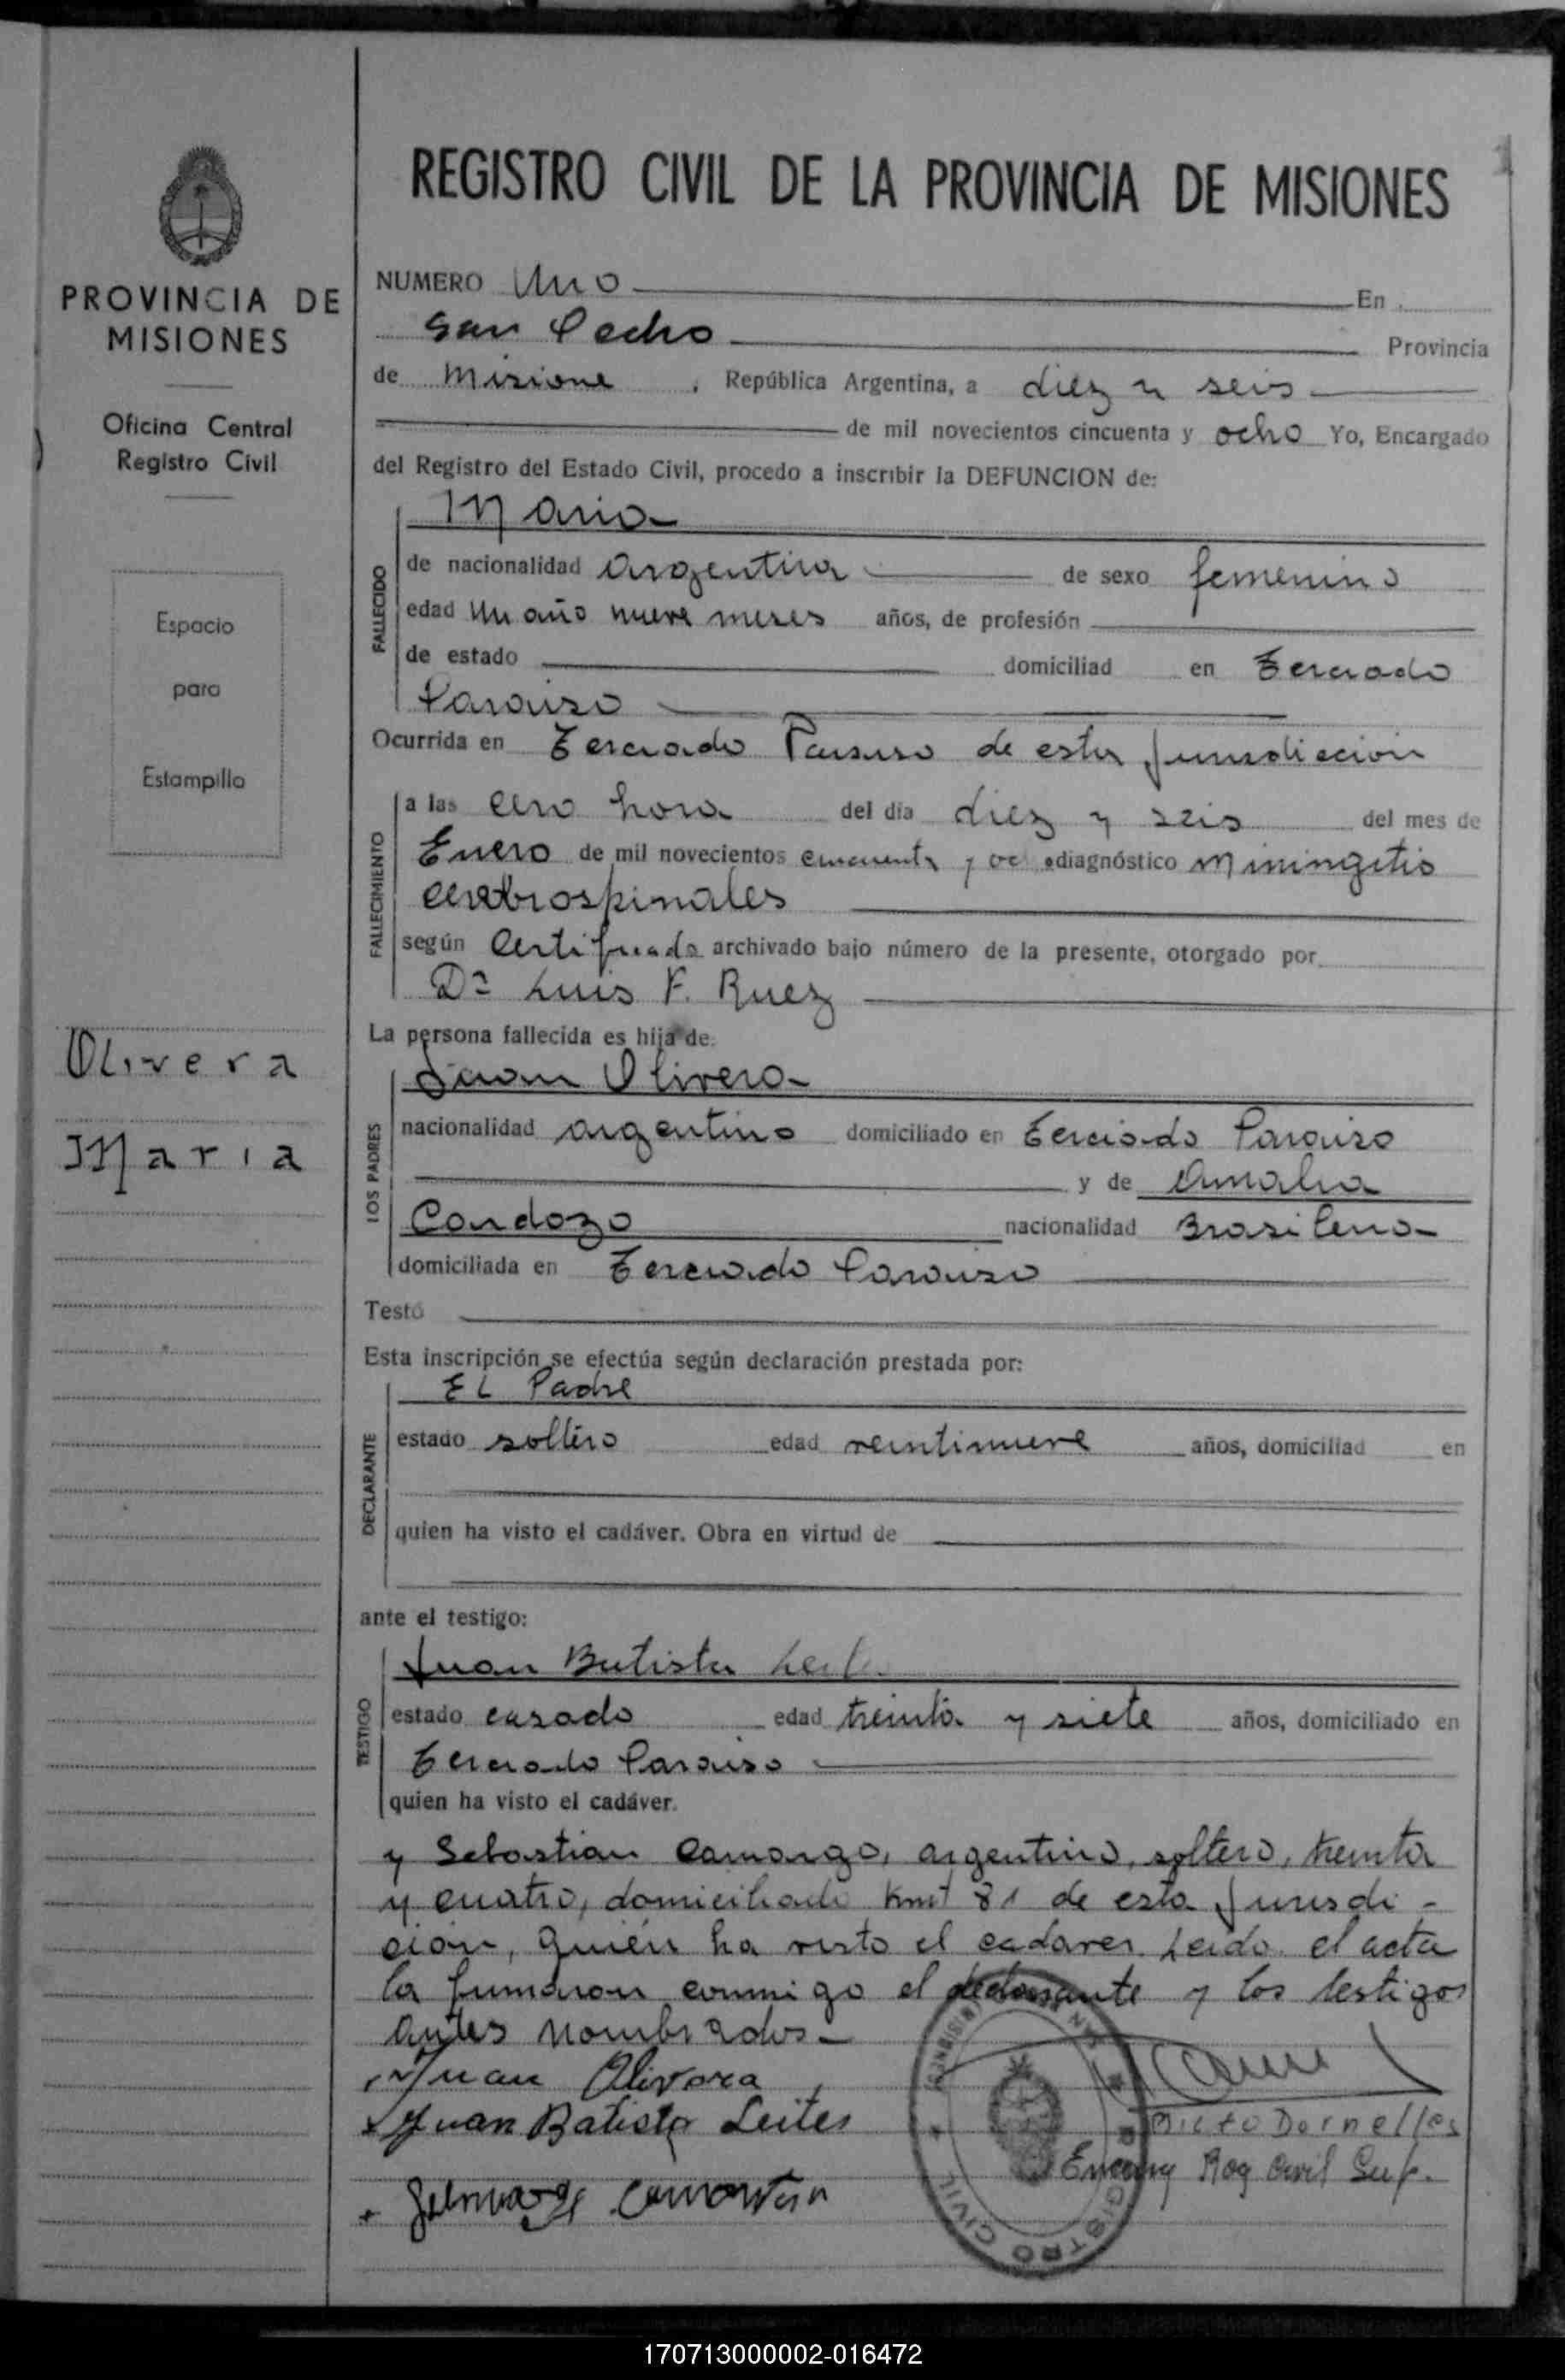 REGISTRO CIVIL DE LA PROVINCIA DE MISIONES
PROVINCIA DE
MISIONES
Oficina Central
Registro Civil
Espacio
para
Estampilla
Olivera
Maria
NUMERO Uno En
San Pedro Provincia
de Misione , República Argentina, a diez y seis
de mil novecientos cincuenta y ocho Yo, Encargado
del Registro del Estado Civil, procedo a inscribir la DEFUNCION de:
Maria
FALLECIDO
de nacionalidad argentina de sexo femenino
edad Un año nueve meses años, de profesión
de estado domiciliad en Terciado
Paraiso
Ocurrida en Terciado Paraiso de esta Jurisdiccion
FALLECIMIENTO
a las cero hora del día diez y seis del mes de
Enero de mil novecientos cincuenta y diagnóstico Miningitis
cerebrospinales
según Certificado archivado bajo número de la presente, otorgado por
Dr Luis F. Ruez
La persona fallecida es hija de:
LOS PADRES
Juan Olivera
nacionalidad argentino domiciliado en Terciado Paraiso
y de Amalia
Cardozo nacionalidad Brasilena
domiciliada en Terciado Paraiso
Testó
Esta inscripción se efectúa según declaración prestada por:
DECLARANTE
EL Padre
estado soltero edad veintinueve años, domiciliad en
quien ha visto el cadáver. Obra en virtud de
ante el testigo:
TESTIGO
Juan Batista
estado casado edad treinta y siete años, domiciliado en
Terciado Paraiso
quien ha visto el cadáver.
y Sebastian Camargo, argentino, soltero, treinta
y cuatro, domiciliado Kmt 81 de esta Jurisdi-
cion, quién ha visto el cadaver. Leido el acta
la firmaron conmigo el declarante y los testigos
antes nombrados.
Juan Olivera
Juan Batista Leites
Dornelles
Encarg Reg Civil Sup.
REGISTRO CIVIL
170713000002-016472